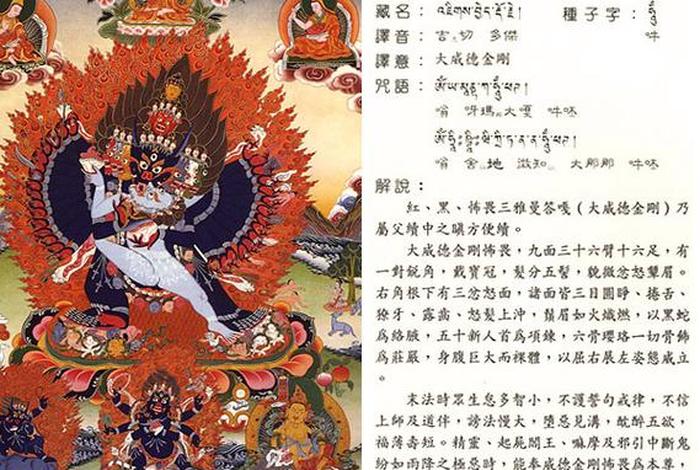 藏名：འཇིགས་བྱེད་རྡོ་རྗེ། 種子字：ཧཱུྃ
譯音：吉 切 多傑 吽
譯意：大威德金剛
咒語：
嗡 呀瑪大嘎 吽呸
嗡 舍 地 溦知 大那那 吽呸
解說：
紅、黑、怖畏三雅曼答嘎（大威德金剛）乃
屬父續中之瞋方便續。
大威德金剛怖畏，九面三十六臂十六足，有
一對銳角，戴寶冠，髮分五髻，貌微忿怒顰眉。
右角根下有三忿怒面，諸面皆三目圓睜、捲舌、
獠牙、露齒、怒髮上沖，鬚眉如火熾燃，以黑蛇
為絡腋，五十新人首為項鍊，六骨瓔珞一切骨飾
為莊嚴，身腹巨大而裸體，以屈右展左姿態成立
。
末法時眾生怠多智小，不護誓句戒律，不信
上師及道伴，謗法慢大，墮惡見溝，酖醉五欲，
福薄壽短。精靈、起屍閻王、嘛摩及邪引中斷鬼
紛如雨降之極惡時，能奉威德金剛怖畏為本尊，